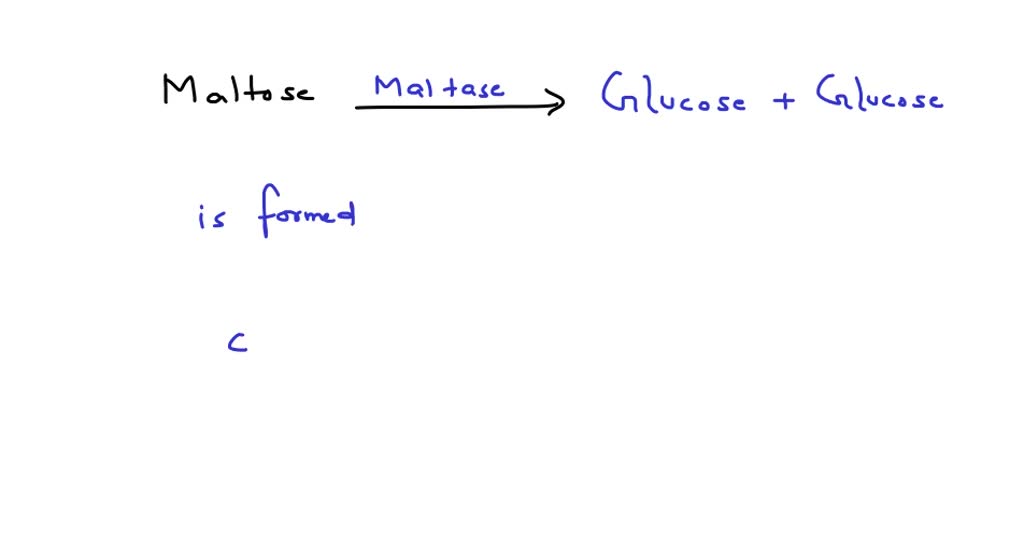 Maltose Maltase Glucose + Glucose
is formed
c